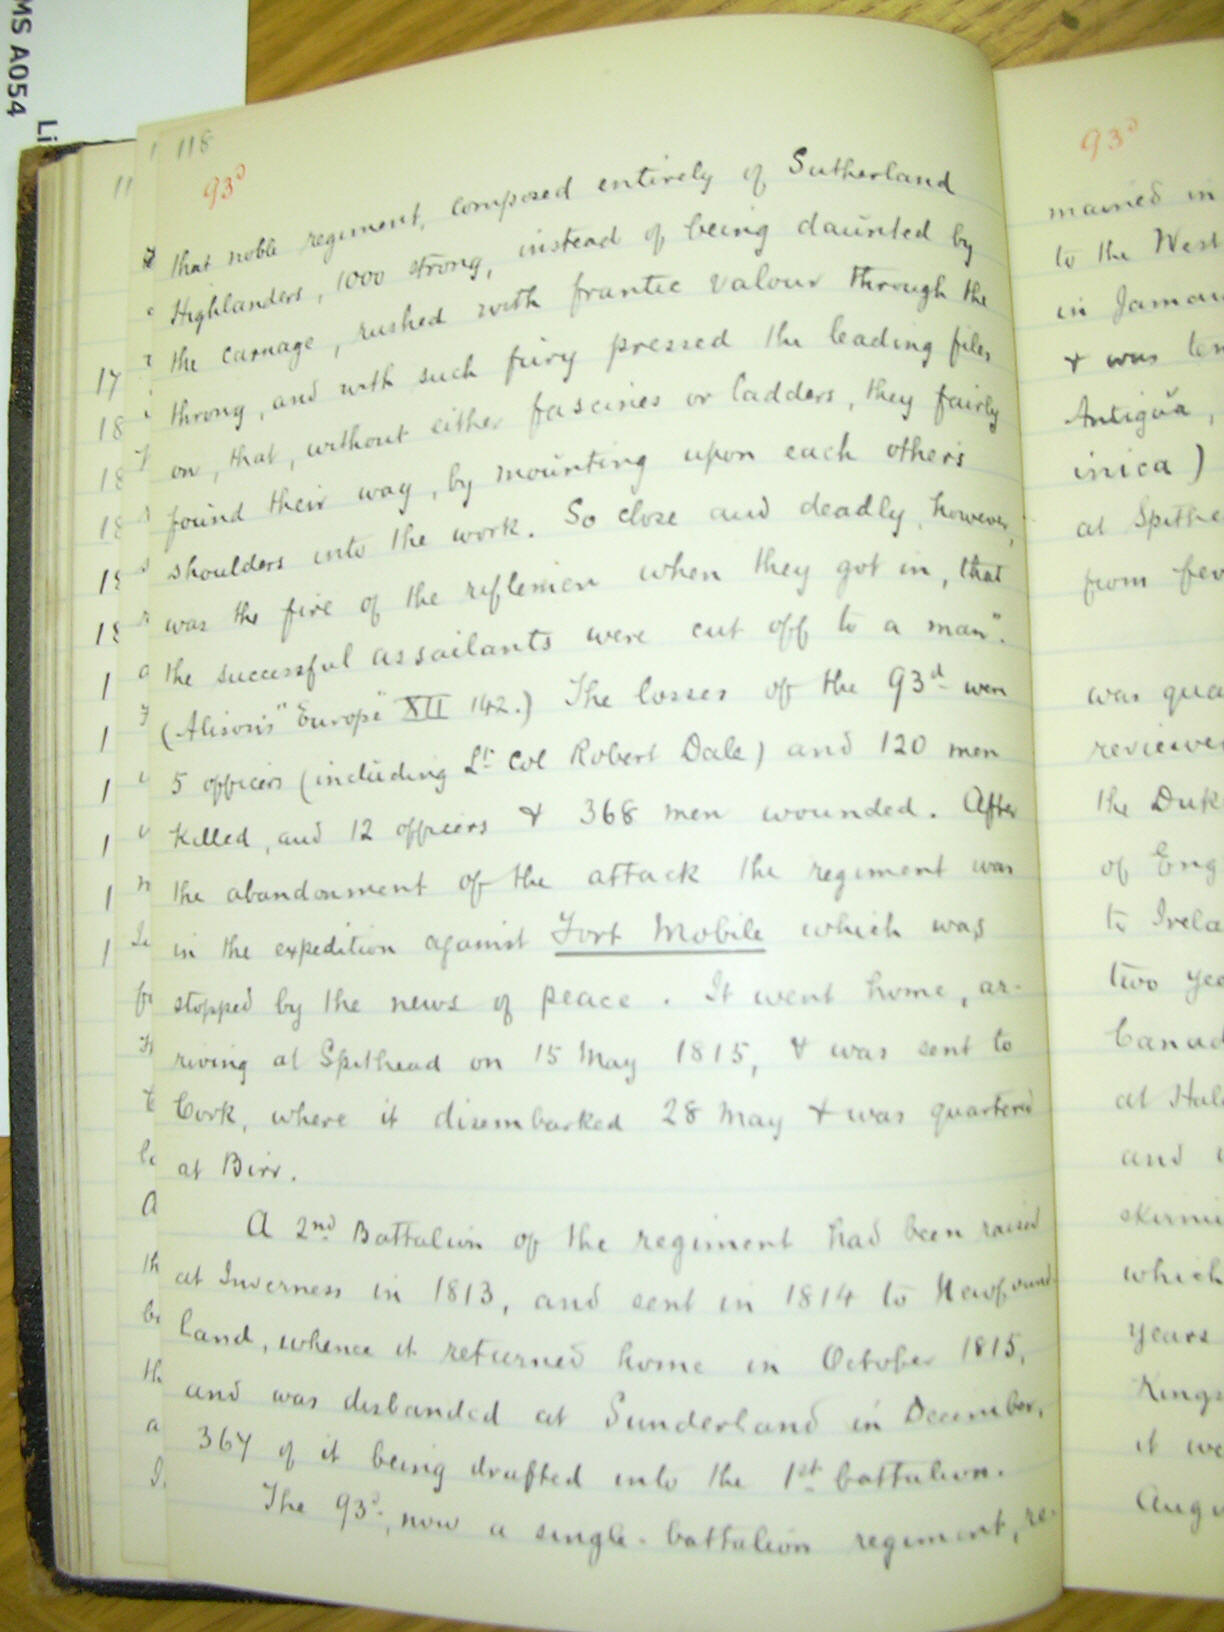 MS A054
Li
118
93d
that noble regiment, composed entirely of Sutherland
Highlanders, 1000 strong, instead of being daunted by
the carnage, rushed with frantic valour through the
throng, and with such fury pressed the leading files
on, that, without either fascines or ladders, they fairly
found their way, by mounting upon each others
shoulders into the work. So close and deadly, however,
was the fire of the riflemen when they got in, that
the successful assailants were cut off to a man".
(Alison's "Europe" XII 142.) The losses of the 93d were
5 officers (including Lt Col Robert Dale) and 120 men
killed, and 12 officers & 368 men wounded. After
the abandonment of the attack the regiment was
in the expedition against Fort Mobile which was
stopped by the news of peace. It went home, ar-
riving at Spithead on 15 May 1815, & was sent to
Cork, where it disembarked 28 May & was quartered
at Birr.
A 2nd Battalion of the regiment had been raised
at Inverness in 1813, and sent in 1814 to Newfound-
land, whence it returned home in October 1815,
and was disbanded at Sunderland in December,
367 of it being drafted into the 1st battalion.
The 93d, now a single-battalion regiment, re-
93d
mained in
to the West
in Jamai
& was ten
Antigua,
inica)
at Spithe
from fev
was qua
reviewe
the Duk
of Eng
to Irela
two yea
Canad
at Hal
and
skirmi
which
years
Kings
it we
Augu